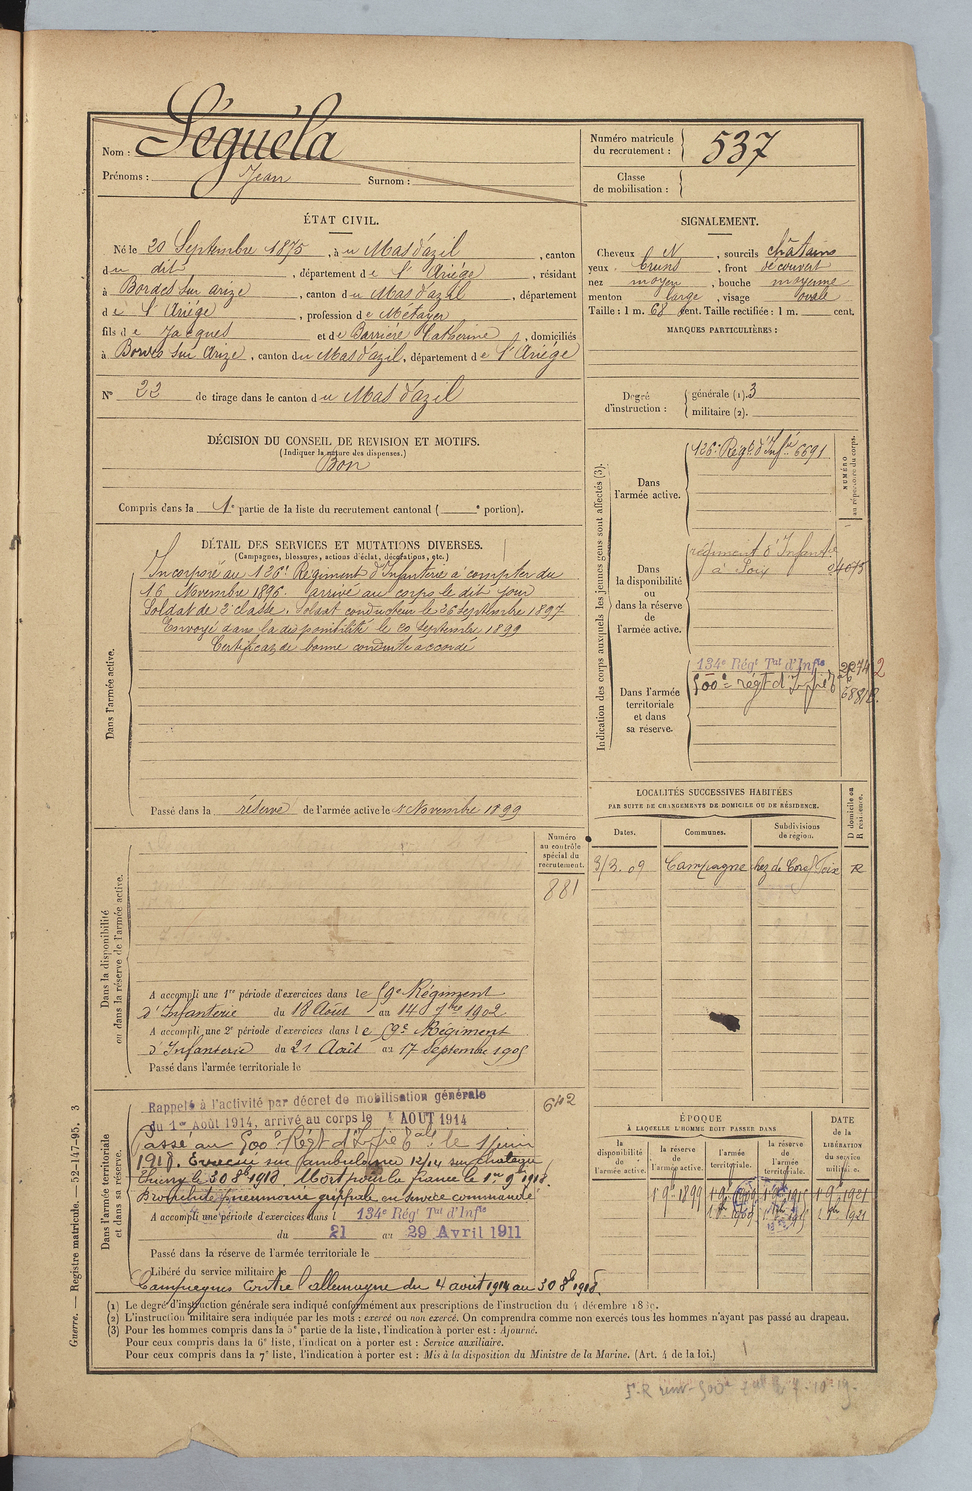 Nom : Séguéla
Prénoms : Jean Surnom :
Numéro matricule du recrutement : 537
Classe de mobilisation :
ÉTAT CIVIL.
Né le 20 Septembre 1875, à u Mas d'azil, canton
du dit, département de l'Ariége, résidant
à Bordes sur arize, canton du Mas d'azil, département
de l'Ariége, profession de Métayer
fils de Jacques et de Barrière Catherine, domiciliés
à Bordes sur Arize, canton du Mas d'azil, département de l'Ariége
N° 22 de tirage dans le canton du Mas d'azil
SIGNALEMENT.
Cheveux N, sourcils châtains
yeux bruns, front découvert
nez moyen, bouche moyenne
menton large, visage ovale
Taille : 1 m. 68 cent. Taille rectifiée : 1 m. cent.
MARQUES PARTICULIÈRES :
Degré d'instruction : générale (1). 3
militaire (2).
DÉCISION DU CONSEIL DE REVISION ET MOTIFS.
(Indiquer la nature des dispenses.)
Bon
Compris dans la 1e partie de la liste du recrutement cantonal ( e portion).
DÉTAIL DES SERVICES ET MUTATIONS DIVERSES.
(Campagnes, blessures, actions d'éclat, décorations, etc.)
Dans l'armée active.
Incorporé au 126e Régiment d'Infanterie à compter du
16 Novembre 1896. arrivé au corps le dit jour
Soldat de 2e classe. Soldat conducteur le 26 Septembre 1897
Envoyé dans la disponibilité le 20 Septembre 1899
Certificat de bonne conduite accordé
Passé dans la réserve de l'armée active le 1r Novembre 1899
Indication des corps auxquels les jeunes gens sont affectés (3).
NUMÉRO au répertoire du corps.
Dans l'armée active.
126e Régt d'Infie 6691
Dans la disponibilité ou dans la réserve de l'armée active.
régiment d'Infantie
à Foix 04075
Dans l'armée territoriale et dans sa réserve.
134e Régt Tal d'Infie
500e régt d'Infie
LOCALITÉS SUCCESSIVES HABITÉES
PAR SUITE DE CHANGEMENTS DE DOMICILE OU DE RÉSIDENCE.
Dates. Communes. Subdivisions de région. D domicile ou R résidence.
Campagne Foix R
Dans la disponibilité ou dans la réserve de l'armée active.
Numéro au contrôle spécial du recrutement.
881
A accompli une 1re période d'exercices dans le 59e Régiment
d'Infanterie du 18 Août au 14 7bre 1902
A accompli une 2e période d'exercices dans le 59e Régiment
d'Infanterie du 21 Août au 17 Septembre 1905
Passé dans l'armée territoriale le
Dans l'armée territoriale et dans sa réserve.
642
Rappelé à l'activité par décret de mobilisation générale
du 1er Août 1914, arrivé au corps le 4 AOUT 1914
Passé au 500e Régt d'Infie tale le 1 juin
1918. Evacué sur l'ambulance 12/14 sur chateau
Thierry le 30 8bre 1918. Mort pour la france le 1er 9bre 1918.
Bronchite pneumonie grippale en service commandé
A accompli une période d'exercices dans l 134e Régt Tal d'Infie
du 21 au 29 Avril 1911
Passé dans la réserve de l'armée territoriale le
Libéré du service militaire le
Campagnes contre l'allemagne du 4 août 1914 au 30 8bre 1918.
ÉPOQUE
À LAQUELLE L'HOMME DOIT PASSER DANS
la disponibilité de l'armée active. la réserve de l'armée active. l'armée territoriale. la réserve de l'armée territoriale.
DATE de la LIBÉRATION du service militaire.
1 9bre 1899 1 9bre 1909 1 9bre 1915 1 9bre 1921
(1) Le degré d'instruction générale sera indiqué conformément aux prescriptions de l'instruction du 4 décembre
(2) L'instruction militaire sera indiquée par les mots : exercé ou non exercé. On comprendra comme non exercés tous les hommes n'ayant pas passé au drapeau.
(3) Pour les hommes compris dans la 5e partie de la liste, l'indication à porter est : Ajourné.
Pour ceux compris dans la 6e liste, l'indication à porter est : Service auxiliaire.
Pour ceux compris dans la 7e liste, l'indication à porter est : Mis à la disposition du Ministre de la Marine. (Art. 4 de la loi.)
Guerre. — Registre matricule. — 52-147-95. 3